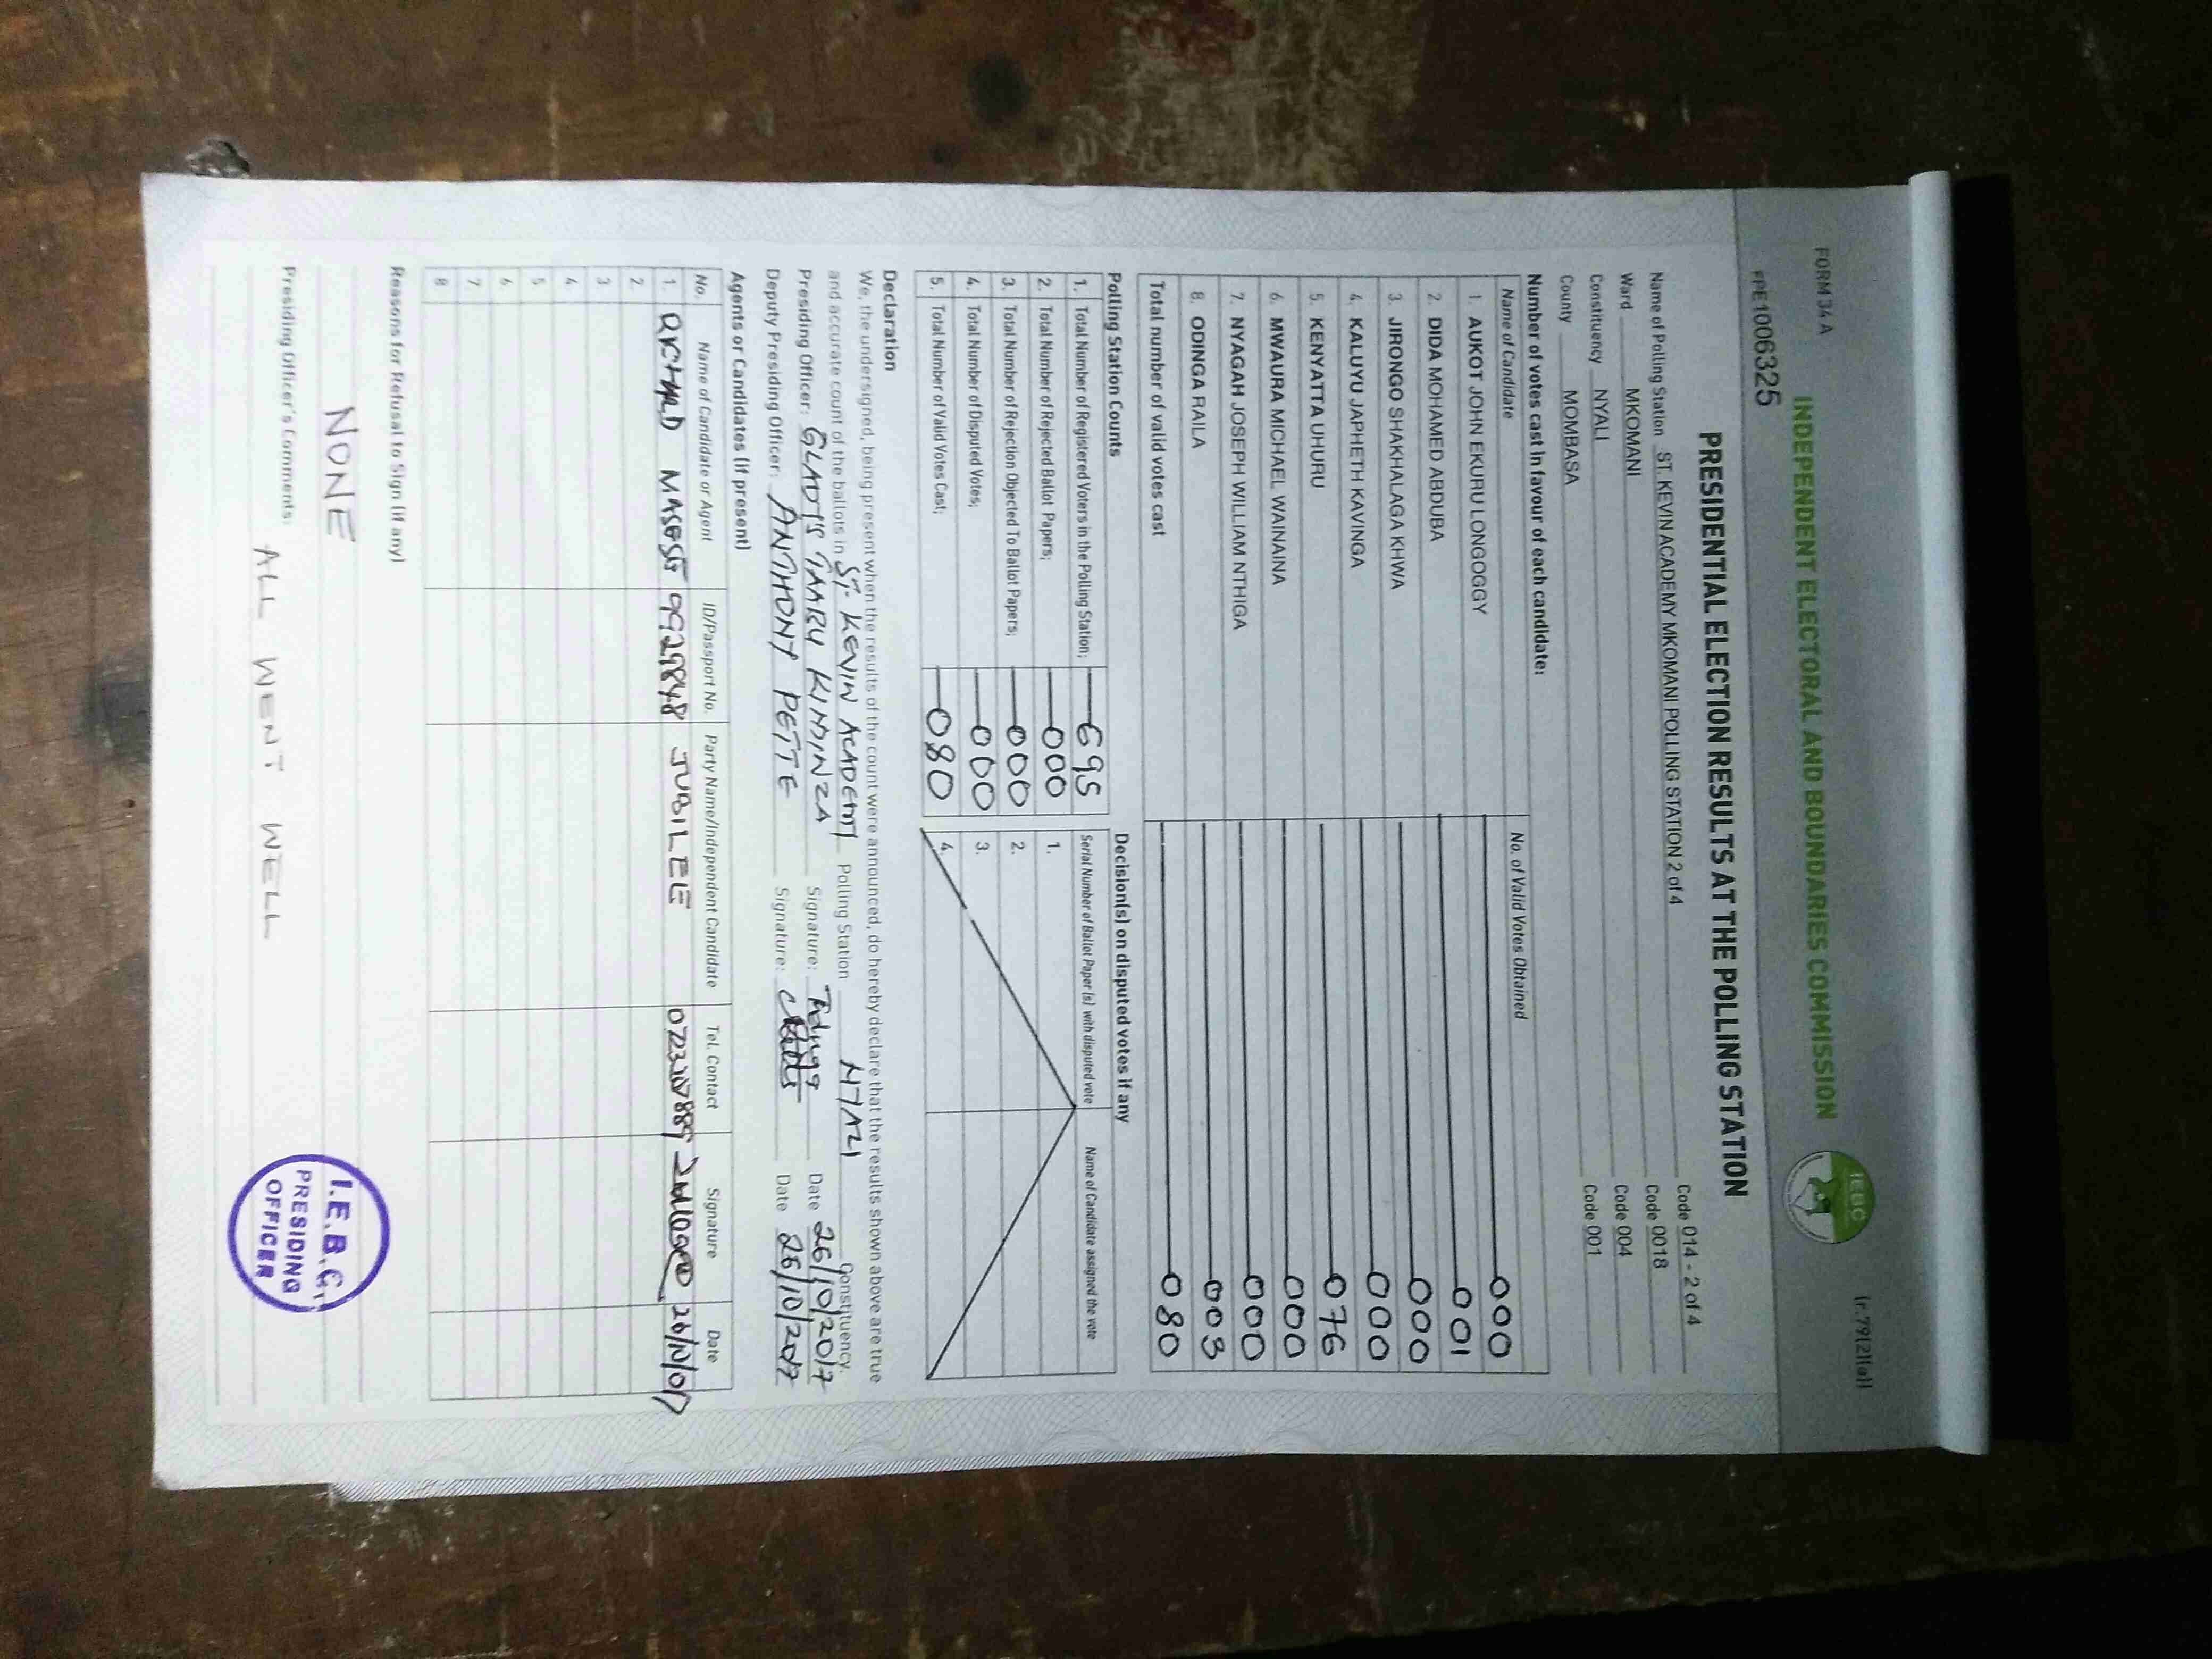 FORM 34 A
(r.79(2)(a))
INDEPENDENT ELECTORAL AND BOUNDARIES COMMISSION
IEBC
FPE1006325
PRESIDENTIAL ELECTION RESULTS AT THE POLLING STATION
Name of Polling Station ST. KEVIN ACADEMY MKOMANI POLLING STATION 2 of 4 Code 014 - 2 of 4
Ward MKOMANI Code 0018
Constituency NYALI Code 004
County MOMBASA Code 001
Number of votes cast in favour of each candidate:
Name of Candidate No. of Valid Votes Obtained
1. AUKOT JOHN EKURU LONGOGGY 000
2. DIDA MOHAMED ABDUBA 001
3. JIRONGO SHAKHALAGA KHWA 000
4. KALUYU JAPHETH KAVINGA 000
5. KENYATTA UHURU 076
6. MWAURA MICHAEL WAINAINA 000
7. NYAGAH JOSEPH WILLIAM NTHIGA 000
8. ODINGA RAILA 003
Total number of valid votes cast 080
Polling Station Counts Decision(s) on disputed votes if any
1. Total Number of Registered Voters in the Polling Station; 695 Serial Number of Ballot Paper (s) with disputed vote Name of Candidate assigned the vote
2. Total Number of Rejected Ballot Papers; 000 1.
3. Total Number of Rejection Objected To Ballot Papers; 000 2.
4. Total Number of Disputed Votes; 000 3.
5. Total Number of Valid Votes Cast; 080 4.
Declaration
We, the undersigned, being present when the results of the count were announced, do hereby declare that the results shown above are true
and accurate count of the ballots in ST. KEVIN ACADEMY Polling Station NYALI Constituency.
Presiding Officer: GLADYS TAABU KIMINZA Signature: Date 26/10/2017
Deputy Presiding Officer: ANTHONY PETTE Signature: Date 26/10/2017
Agents or Candidates (if present)
No. Name of Candidate or Agent ID/Passport No. Party Name/Independent Candidate Tel. Contact Signature Date
1. RICHARD 9929848 JUBILEE
2
3
4
5
6
7
8
Reasons for Refusal to Sign (if any)
NONE
Presiding Officer's Comments:
ALL WENT WELL
I.E.B.C.
PRESIDING
OFFICER